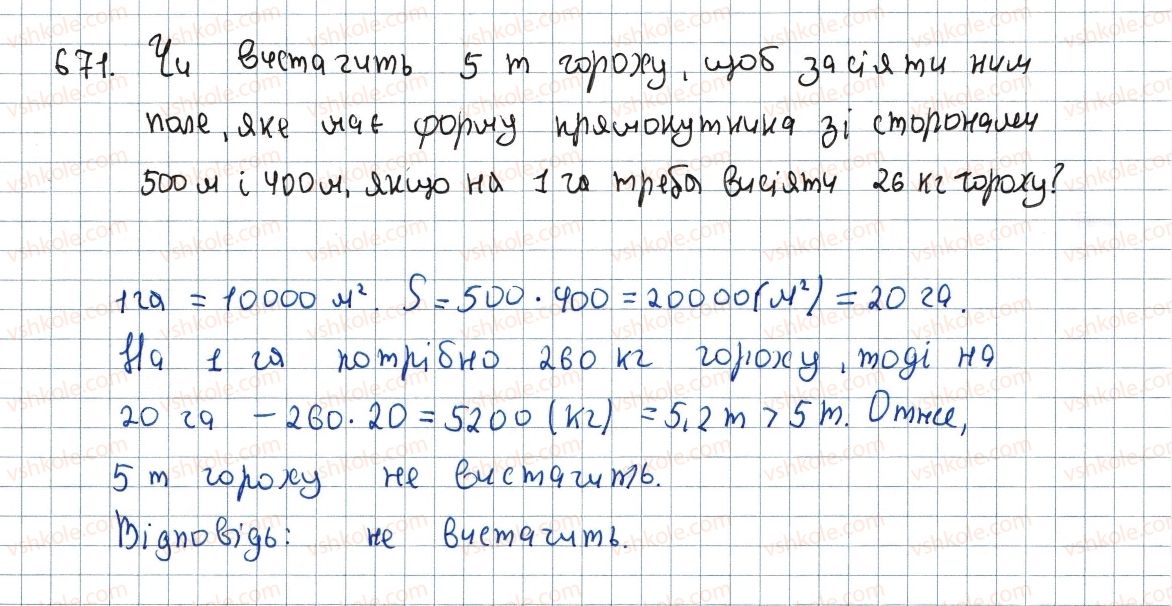 671. Чи вистачить 5 т гороху, щоб засіяти ним
поле, яке має форму прямокутника зі сторонами
500 м і 400 м, якщо на 1 га треба висіяти 26 кг гороху?
1 га = 10000 м². S = 500 · 400 = 20000 (м²) = 20 га.
На 1 га потрібно 260 кг гороху, тоді на
20 га – 260 · 20 = 5200 (кг) = 5,2 т > 5 т. Отже,
5 т гороху не вистачить.
Відповідь: не вистачить.